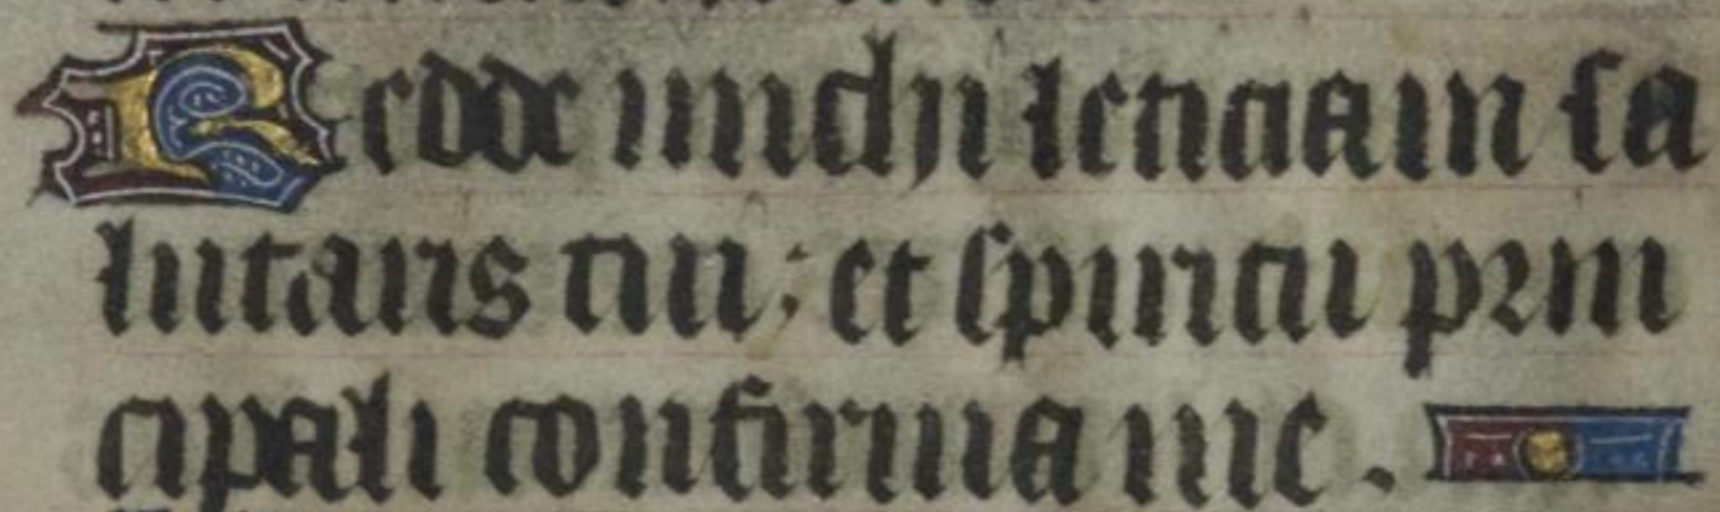 Redde michi leticiam sa
lutaris tui: et spiritu prin
cipali confirma me.